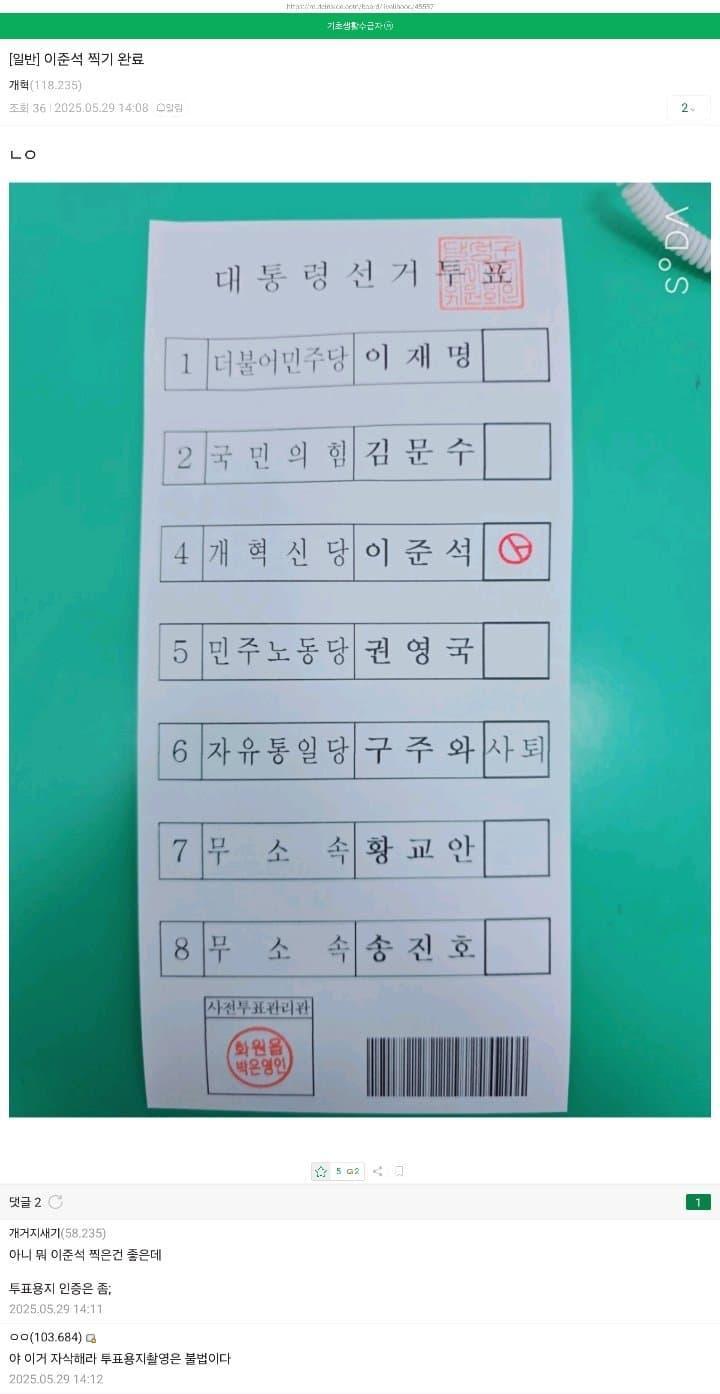 기초생활수급자
[일반] 이준석 찍기 완료
개혁(118.235)
조회 36 | 2025.05.29 14:08 알림
2
ㄴㅇ
대통령선거투표
1 더불어민주당 이재명
2 국민의힘 김문수
4 개혁신당 이준석
5 민주노동당 권영국
6 자유통일당 구주와 사퇴
7 무소속 황교안
8 무소속 송진호
사전투표관리관
화원읍
박은영인
5
댓글 2
1
개거지새기(58.235)
아니 뭐 이준석 찍은건 좋은데
투표용지 인증은 좀;
2025.05.29 14:11
ㅇㅇ(103.684)
야 이거 자삭해라 투표용지촬영은 불법이다
2025.05.29 14:12